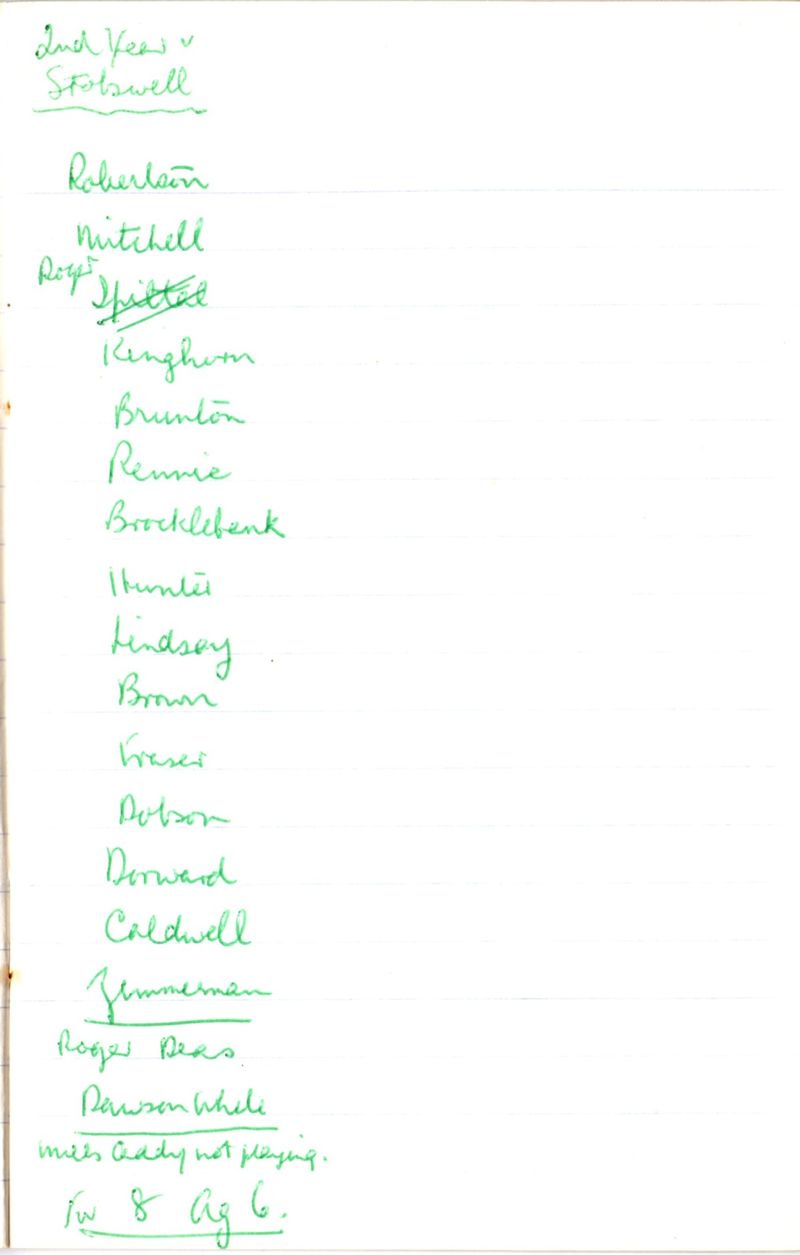 2nd Year v
Stobswell
Robertson
Mitchell
Roger
Spittal
Kinghorn
Brunton
Rennie
Brocklebank
Hunter
Lindsay
Brown
Fraser
Dobson
Dorward
Caldwell
Zimmerman
Roger Deas
Dawson While
Caddy not playing.
For 8 Ag 6.